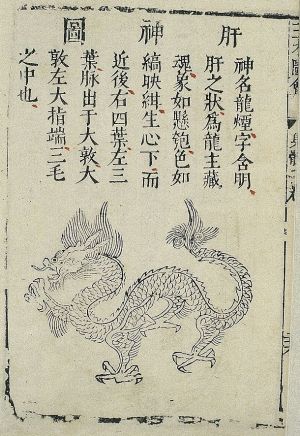 肝神圖
神名龍煙字含明
肝之狀為龍主藏
魂象如懸匏色如
縞映紺生心下而
近後右四葉左三
葉脈出于大敦大
敦左大指端三毛
之中也
三才圖會